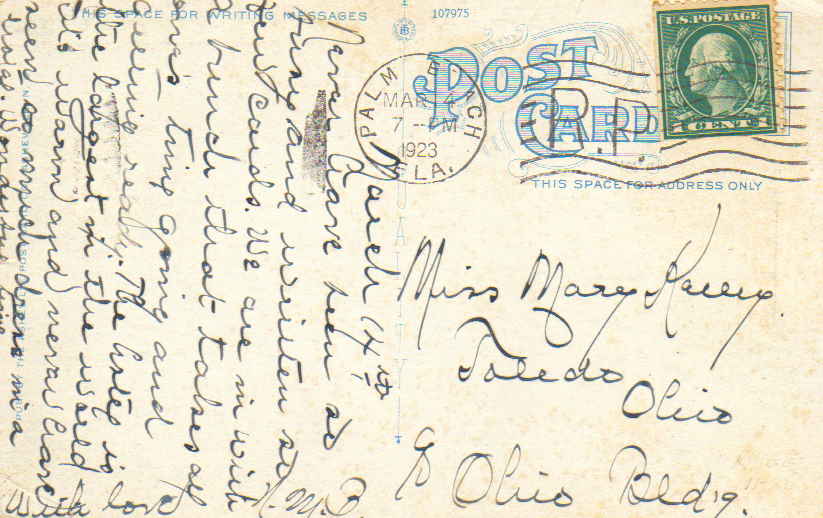 THIS SPACE FOR WRITING MESSAGES
107975
POST
CARD
U.S. POSTAGE
1 CENT 1
PALM BEACH
MAR 14
7 - PM
1923
FLA.
THIS SPACE FOR ADDRESS ONLY
March 14th
Never have been so
busy and written so
few cards. We are in with
a bunch that takes all
one's time going and
getting ready. The hotel is
the largest in the world
It's warm and never have
seen so much dress in a
With love
M. B.
Miss Mary Kelley
Toledo
Ohio
% Ohio Bldg.